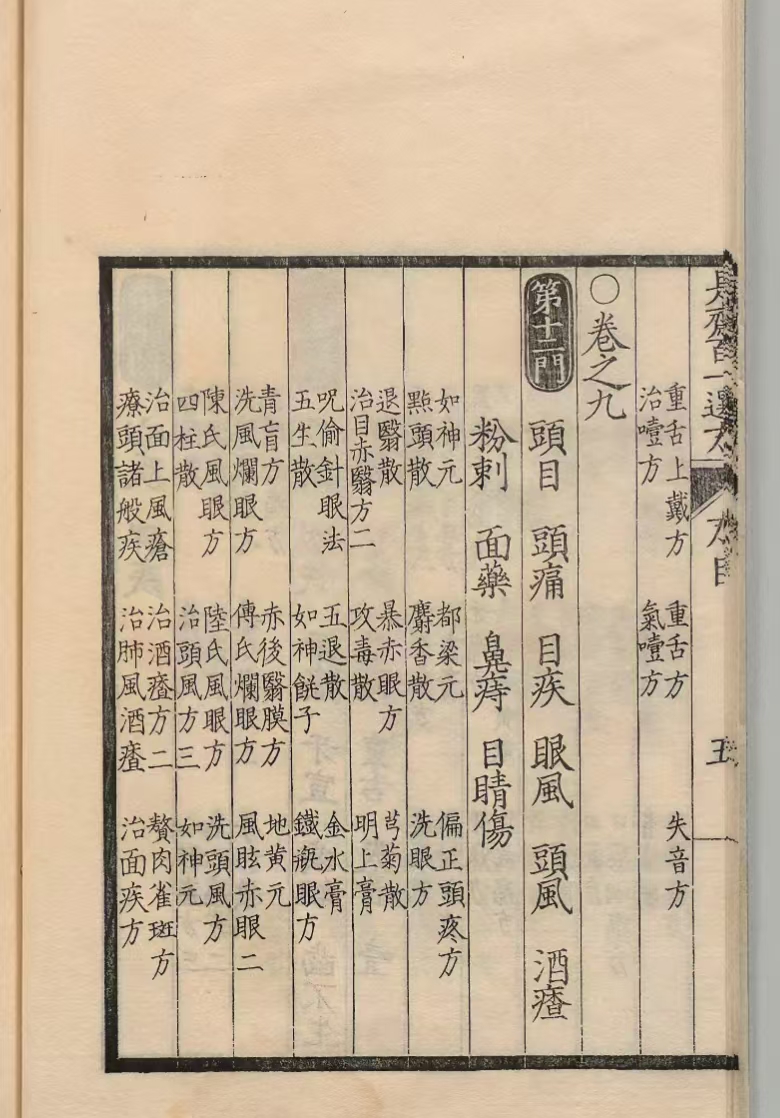 是齋百一選方 五
重舌上戴方 重舌方 失音方
治噎方 氣噎方
○卷之九
第十二門 頭目 頭痛 目疾 眼風 頭風 酒㾴
粉刺 面藥 鼻痔 目睛傷
如神元 都梁元 偏正頭疼方
點頭散 麝香散 洗眼方
退翳散 暴赤眼方 芎菊散
治目赤翳方二 攻毒散 明上膏
呪偷針眼法 五退散 金水膏
五生散 如神 子 鐵 眼方
青盲方 赤後翳膜方 地黄元
洗風爛眼方 傅氏爛眼方 風眩赤眼二
陳氏風眼方 陸氏風眼方 洗頭風方
四柱散 治頭風方三 如神元
治面上風瘡 治酒㾴方二 贅肉雀斑方
療頭諸般疾 治肺風酒㾴 治面疾方